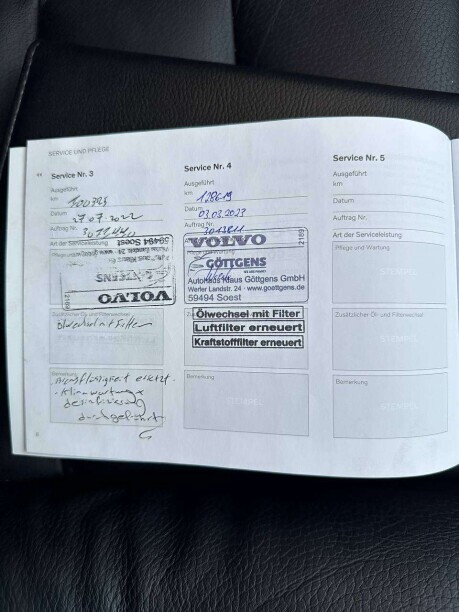 SERVICE UND PFLEGE
Service Nr. 3
Ausgeführt
km
100323
Datum
27.07.2022
Auftrag Nr.
Art der Serviceleistung
59494 Soest
GÖTTGENS
VOLVO
12189
Zusätzlicher Öl- und Filterwechsel
Ölwechsel mit Filter
Bemerkung
Bremsflüssigkeit ersetzt.
Klimawartung
desinfizierung
durchgeführt
Service Nr. 4
Ausgeführt
km
128619
Datum
03.03.2023
Auftrag Nr.
VOLVO
12189
GÖTTGENS
Autohaus Klaus Göttgens GmbH
Werler Landstr. 24 · www.goettgens.de
59494 Soest
Ölwechsel mit Filter
Luftfilter erneuert
Kraftstofffilter erneuert
Bemerkung
STEMPEL
Service Nr. 5
Ausgeführt
km
Datum
Auftrag Nr.
Art der Serviceleistung
Pflege und Wartung
STEMPEL
Zusätzlicher Öl- und Filterwechsel
STEMPEL
Bemerkung
STEMPEL